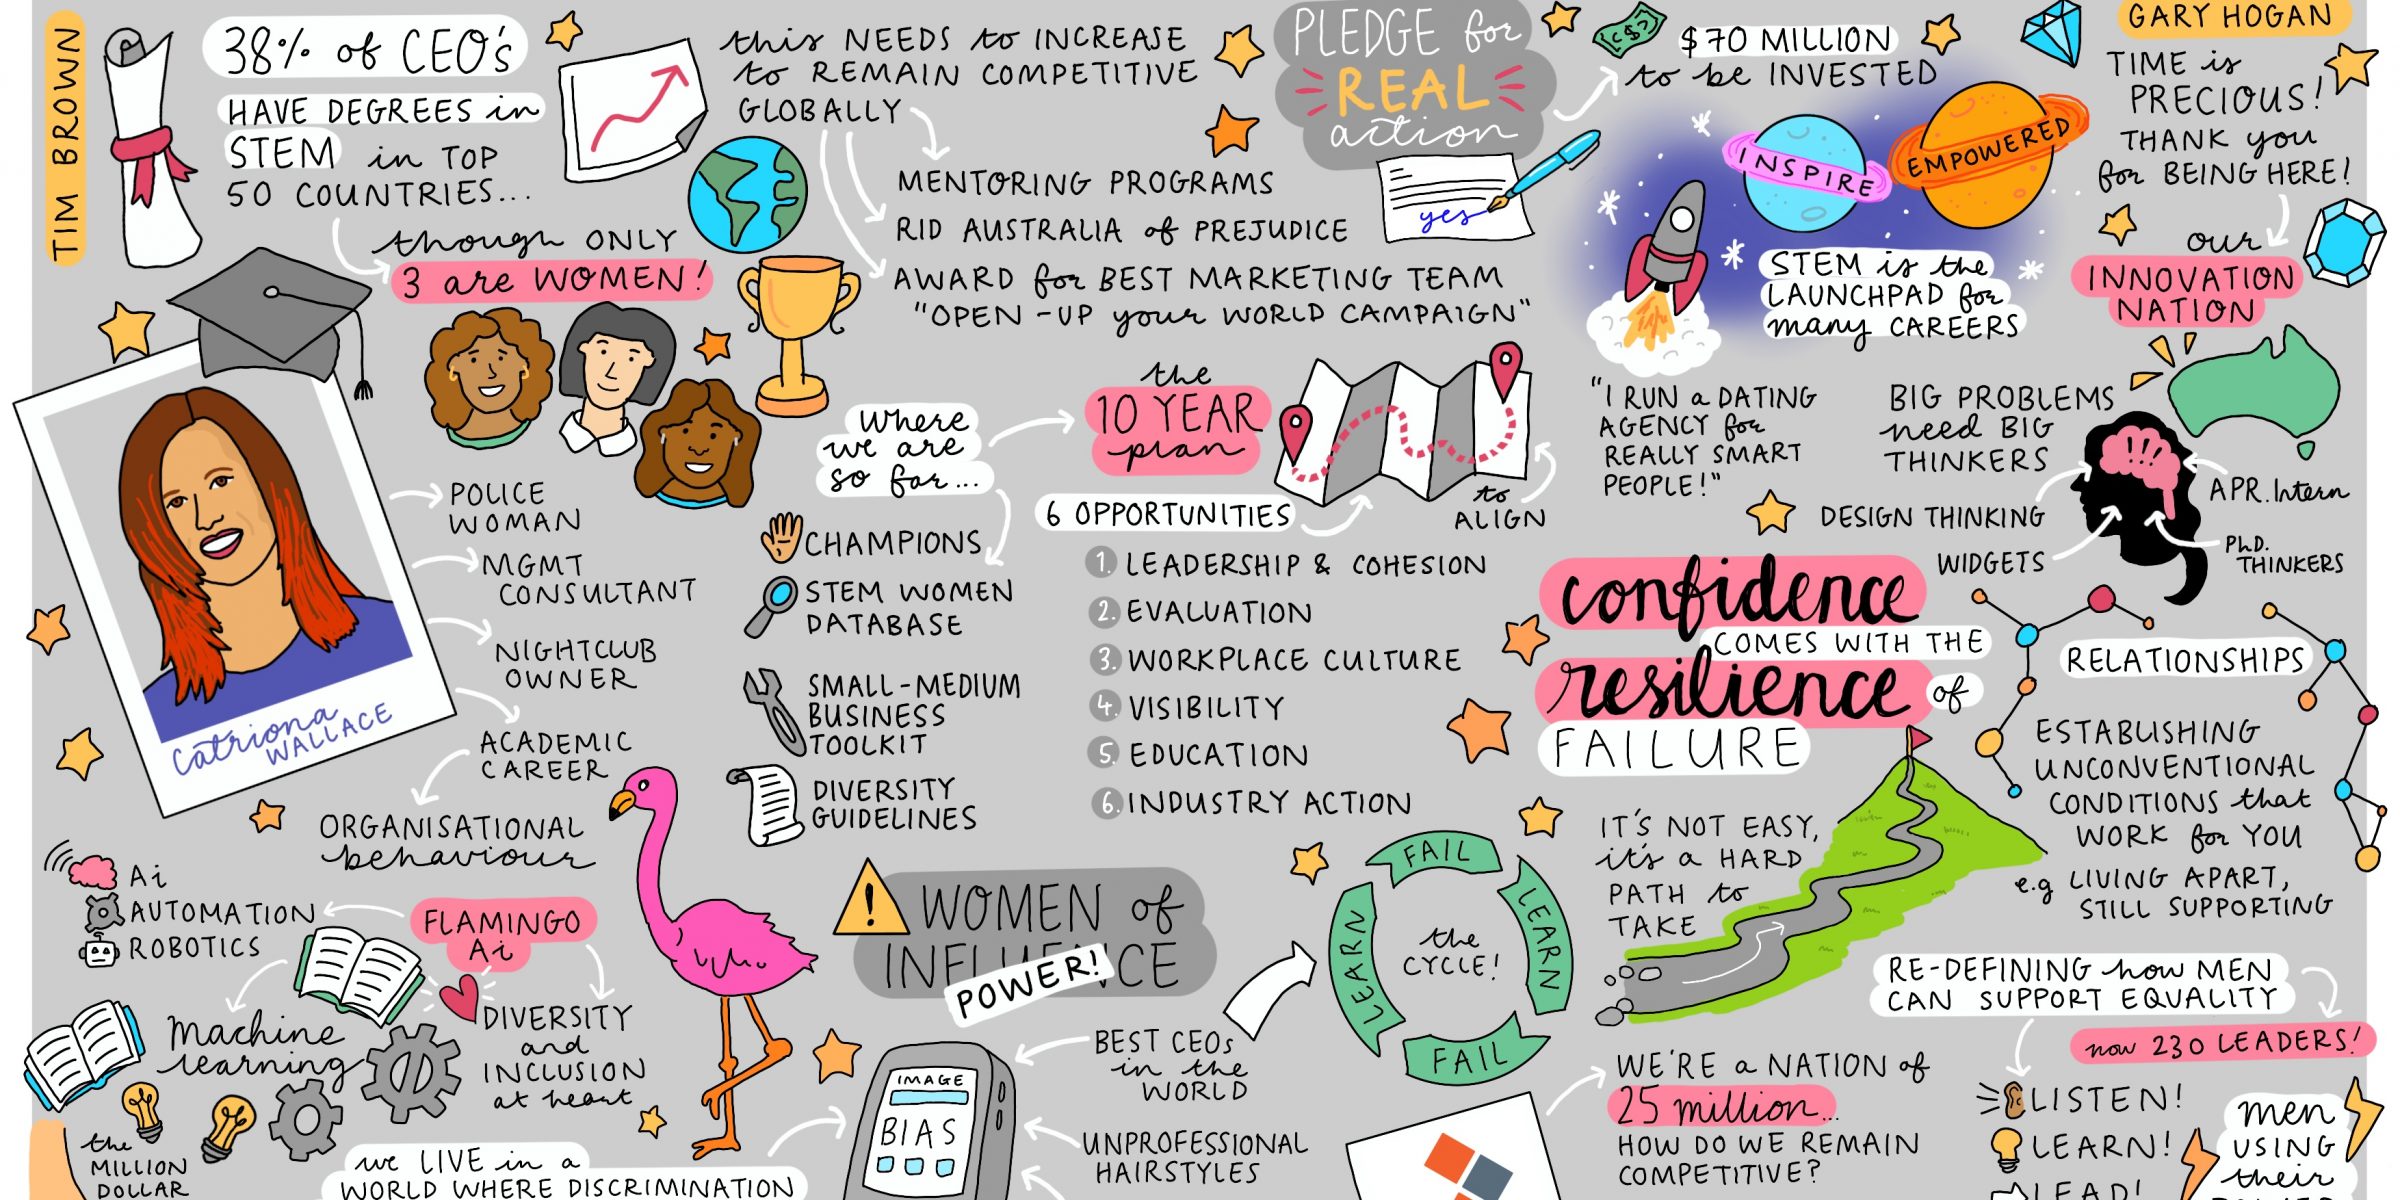 TIM BROWN
38% of CEO's
HAVE DEGREES in
STEM in TOP
50 COUNTRIES...
though ONLY
3 are WOMEN!
this NEEDS to INCREASE
to REMAIN COMPETITIVE
GLOBALLY
MENTORING PROGRAMS
RID AUSTRALIA of PREJUDICE
AWARD for BEST MARKETING TEAM
"OPEN-UP your WORLD CAMPAIGN"
PLEDGE for
REAL
action
yes
$70 MILLION
to be INVESTED
INSPIRE
EMPOWERED
STEM is the
LAUNCHPAD for
many CAREERS
GARY HOGAN
TIME is
PRECIOUS!
THANK you
for BEING HERE!
our
INNOVATION
NATION
Catriona
WALLACE
POLICE
WOMAN
MGMT
CONSULTANT
NIGHTCLUB
OWNER
ACADEMIC
CAREER
ORGANISATIONAL
behaviour
Where
we are
so far...
CHAMPIONS
STEM WOMEN
DATABASE
SMALL-MEDIUM
BUSINESS
TOOLKIT
DIVERSITY
GUIDELINES
the
10 YEAR
plan
to
ALIGN
6 OPPORTUNITIES
1. LEADERSHIP & COHESION
2. EVALUATION
3. WORKPLACE CULTURE
4. VISIBILITY
5. EDUCATION
6. INDUSTRY ACTION
"I RUN a DATING
AGENCY for
REALLY SMART
PEOPLE!"
BIG PROBLEMS
need BIG
THINKERS
!!!
DESIGN THINKING
WIDGETS
APR. Intern
PhD.
THINKERS
confidence
COMES WITH THE
resilience of
FAILURE
IT'S NOT EASY,
it's a HARD
PATH to
TAKE
RELATIONSHIPS
ESTABLISHING
UNCONVENTIONAL
CONDITIONS that
WORK for YOU
e.g LIVING APART,
STILL SUPPORTING
Ai
AUTOMATION
ROBOTICS
FLAMINGO
Ai
Machine
learning
DIVERSITY
and
INCLUSION
at heart
the
MILLION
DOLLAR
we LIVE in a
WORLD WHERE DISCRIMINATION
!
WOMEN of
INFLUENCE
POWER!
IMAGE
BIAS
BEST CEOs
in the
WORLD
UNPROFESSIONAL
HAIRSTYLES
FAIL
LEARN
FAIL
LEARN
the
CYCLE!
WE'RE a NATION of
25 million...
HOW DO WE REMAIN
COMPETITIVE?
RE-DEFINING how MEN
CAN SUPPORT EQUALITY
now 230 LEADERS!
LISTEN!
LEARN!
LEAD!
men
USING
their